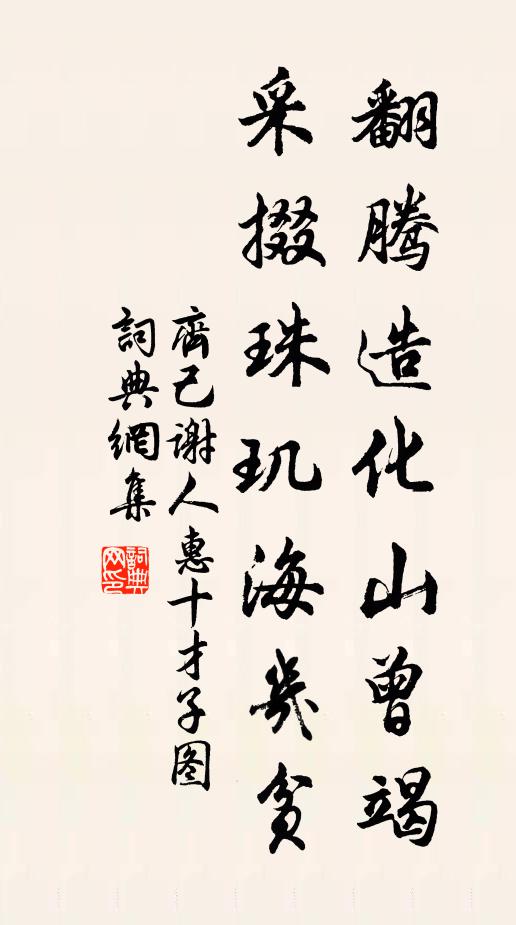 翻騰造化山曾竭
采掇珠玑海幾貧
齊己謝人惠十才子图
詞典網集
詞典网印